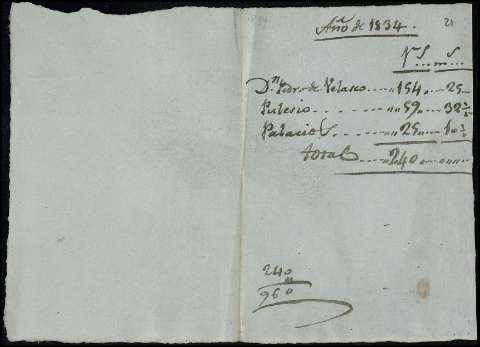 21
Añ.º de 1834.
V.s ... m.s
D.n Pedro de Velasco ... 154 ... 25
... 59 ... 32 ½
Palacios ... 25 ... 10 ½
total ... 240 ...
240
4
960